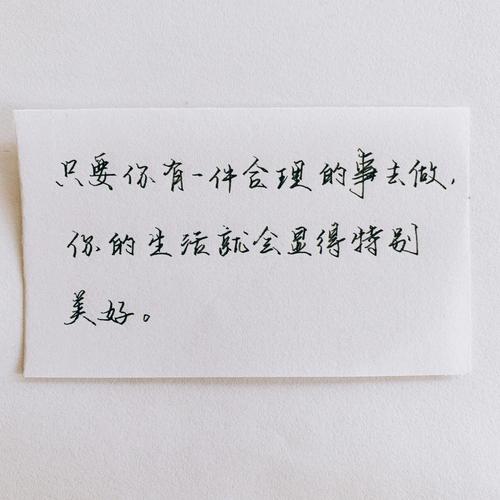 只要你有一件合理的事去做,
你的生活就会显得特别
美好。